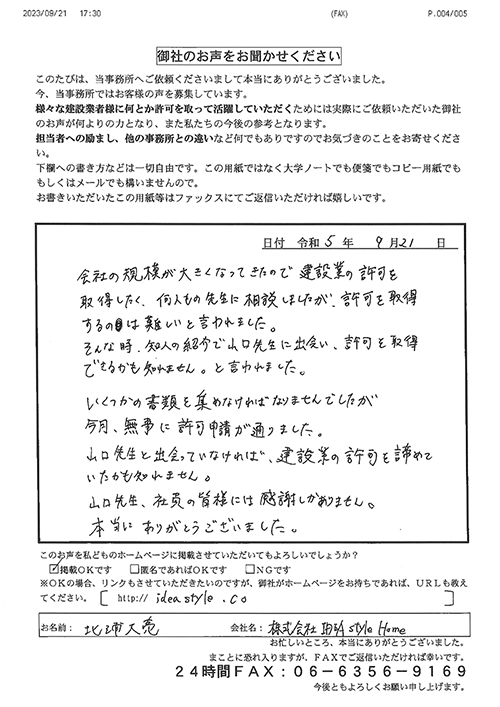 2023/09/21 17:30 (FAX) P.004/005
御社のお声をお聞かせください
このたびは、当事務所へご依頼くださいまして本当にありがとうございました。
今、当事務所ではお客様の声を募集しています。
様々な建設業者様に何とか許可を取って活躍していただくためには実際にご依頼いただいた御社
のお声が何よりの力となり、また私たちの今後の参考となります。
担当者への励まし、他の事務所との違いなど何でもありですのでお気づきのことをお寄せくださ
い。
下欄への書き方などは一切自由です。この用紙ではなく大学ノートでも便箋でもコピー用紙でも
もしくはメールでも構いませんので。
お書きいただいたこの用紙等はファックスにてご返信いただければ嬉しいです。
日付 令和 5 年 9 月 21 日
会社の規模が大きくなってきたので建設業の許可を
取得したく、何人もの先生に相談しましたが、許可を取得
するのは難しいと言われました。
そんな時、知人の紹介で山口先生に出会い、許可を取得
できるかも知れません。と言われました。
いくつかの書類を集めなければなりませんでしたが
今月、無事に許可申請が通りました。
山口先生と出会っていなければ、建設業の許可を諦めて
いたかも知れません。
山口先生、社員の皆様には感謝しかありません。
本当にありがとうございました。
このお声を私どものホームページに掲載させていただいてもよろしいでしょうか？
☑掲載OKです □匿名であればOKです □NGです
※OKの場合、リンクもさせていただきたいのですが、御社がホームページをお持ちであれば、URLも教え
てください。[ http://ideastyle.co ]
お名前： 北浦大亮 会社名： 株式会社 IDEA Style Home
お忙しいところ、本当にありがとうございました。
まことに恐れ入りますが、FAXでご返信いただければ幸いです。
24時間FAX：06－6356－9169
今後ともよろしくお願い申し上げます。